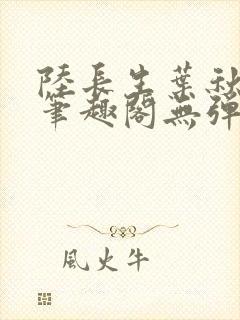 陸長生葉秋
筆趣閣無彈
風火牛